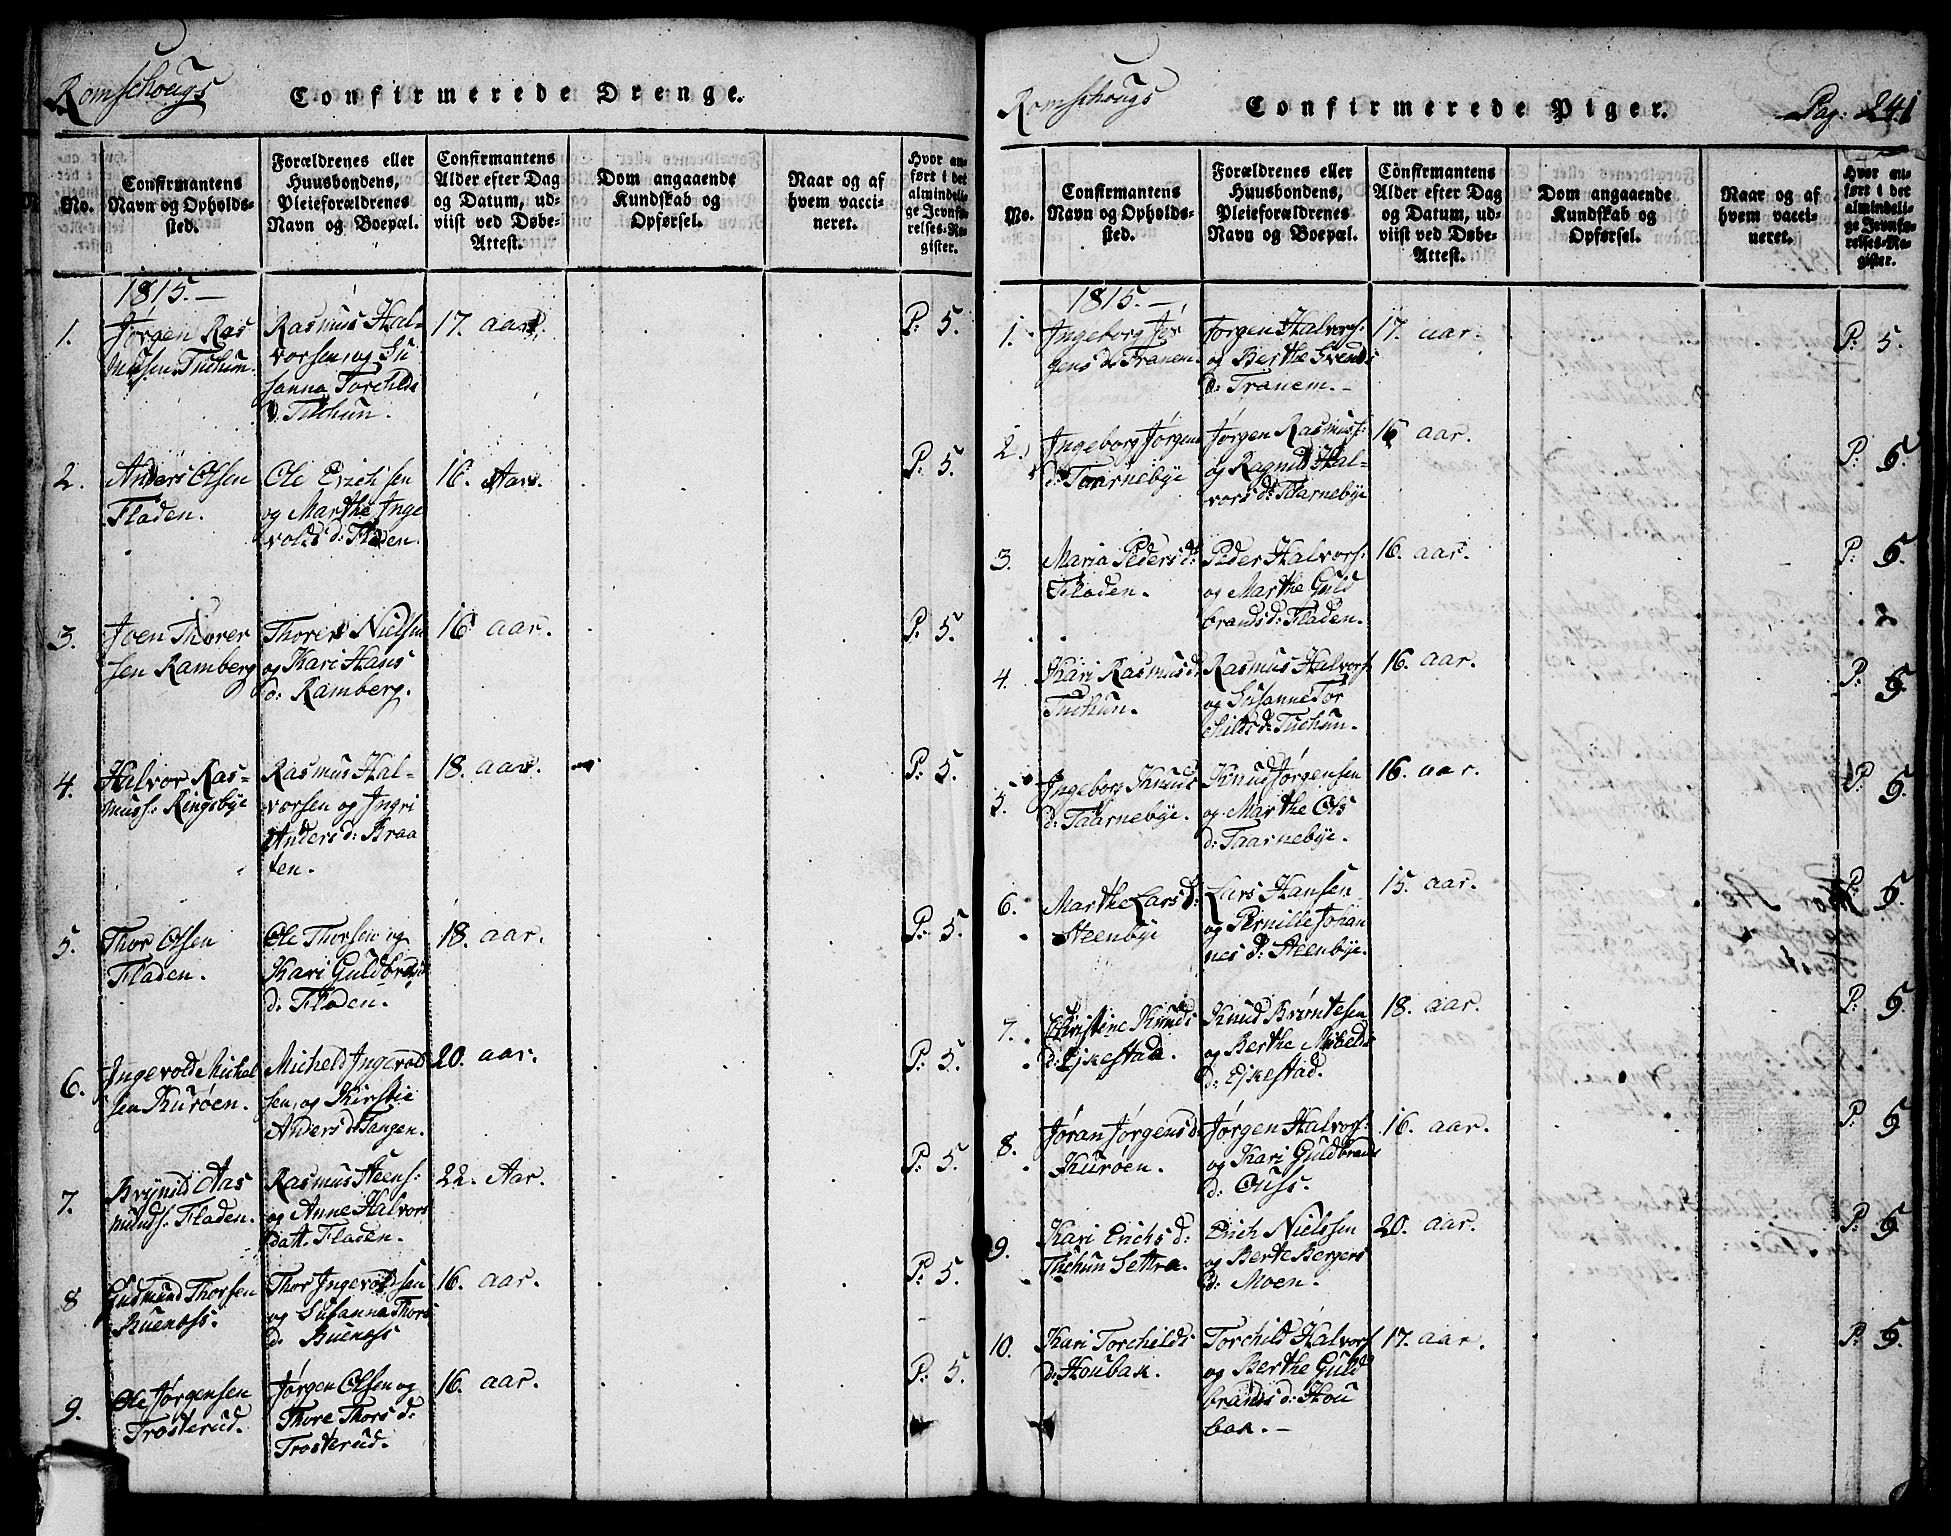 Romschougs
Confirmerede Drenge.
No.
Confirmantens
Navn og Opholds-
sted.
Forældrenes eller
Huusbondens,
Pleieforældrenes
Navn og Boepæl.
Confirmantens
Alder efter Dag
og Datum, ud-
viist ved Døbe-
Attest.
Dom angaaende
Kundskab og
Opførsel.
Naar og af
hvem vacci-
neret.
Hvor an-
ført i det
almindeli-
ge Jevnfø-
relses-Re-
gister.
1815.
1.
Jørgen Ras
musen Tuchun.
Rasmus Hal-
vorsen, og Su
sanna Torchilds
d: Tuchun.
17. aar.
P: 5.
2.
Anders Olsen
Fladen.
Ole Erichsen
og Marthe Inge
volds d: Fladen.
16. Aar.
P: 5.
3.
Joen Thorer
sen Ramberg
Thorer Nielsen
og Kari Hans
d: Ramberg.
16 aar.
P: 5.
4.
Halvor Ras-
muss: Ringsbye
Rasmus Hal-
vorsen og Ingri
Anders d: Braa
ten.
18. aar.
P: 5.
5.
Thor Olsen
Fladen.
Ole Thorsen og
Kari Guldbrands
d: Fladen.
18. aar.
P: 5.
6.
Ingevold Michel
sen Kurøen.
Micheld Ingevold
sen, og Kirstie
Anders d: Tangen.
20. aar.
P: 5.
7.
Brynild Aas
munds: Fladen.
Rasmus Steens:
og Anne Halvors
datt. Fladen.
22. Aar.
P: 5.
8
Gudmund Thorsen
Buenæss.
Thor Ingevoldsen
og Susanna Thors
d: Buenæss
16. aar.
P: 5.
9.
Ole Jørgensen
Trosterud.
Jørgen Olsen og
Thore Thors d:
Trosterud.
16. aar.
P: 5.
Romschougs
Confirmerede Piger.
Pag: 241
No.
Confirmantens
Navn og Opholds-
sted.
Forældrenes eller
Huusbondens,
Pleieforældrenes
Navn og Boepæl.
Confirmantens
Alder efter Dag
og Datum, ud-
viist ved Døbe-
Attest.
Dom angaaende
Kundskab og
Opførsel.
Naar og af
hvem vacci-
neret.
Hvor an-
ført i det
almindeli-
ge Jevnfø-
relses-Re-
gister.
1815.
1.
Ingeborg Jør
gens d: Tranem.
Jørgen Halvors:
og Berthe Svends
d: Tranem.
17. aar.
P: 5.
2.
Ingeborg Jørgens
d: Taarnebye
Jørgen Rasmuss:
og Ragnild Hal-
vors d: Taarnebye
16 aar.
P: 5.
3.
Maria Peders d:
Fladen.
Peder Halvors:
og Marthe Guld
brands d: Fladen.
16. aar.
P: 5
4.
Kari Rasmus d:
Tuchun.
Rasmus Halvors:
og Susanne Tor
kilds d: Tuchun.
16. aar.
P: 5.
5.
Ingeborg Knuds
d: Taarnebye.
Knud Jørgensen
og Marthe Ols
d: Taarnebye.
16. aar.
P: 5.
6.
Marthe Lars d:
Steenbye
Lars Hansen
og Pernille Johan
nes d: Steenbye.
15. aar.
P: 5.
7.
Christine Knuds
d: Ejkestad.
Knud Brøntesen
og Berthe
d: Ejkestad.
18. aar.
P: 5
8.
Jøran Jørgens d:
Kurøen.
Jørgen Halvors:
og Kari Guldbrands
d: Ouss.
16. aar.
P: 5
9.
Kari Erichs d:
Tuchun Settra.
Erich Nielssen
og Berte Bergers
d: Moen.
20. aar.
P: 5
10.
Kari Torchilds
d: Houbak.
Torchild Halvors
og Berthe Guld
brands d: Hou
bak.
17. aar.
P: 5.